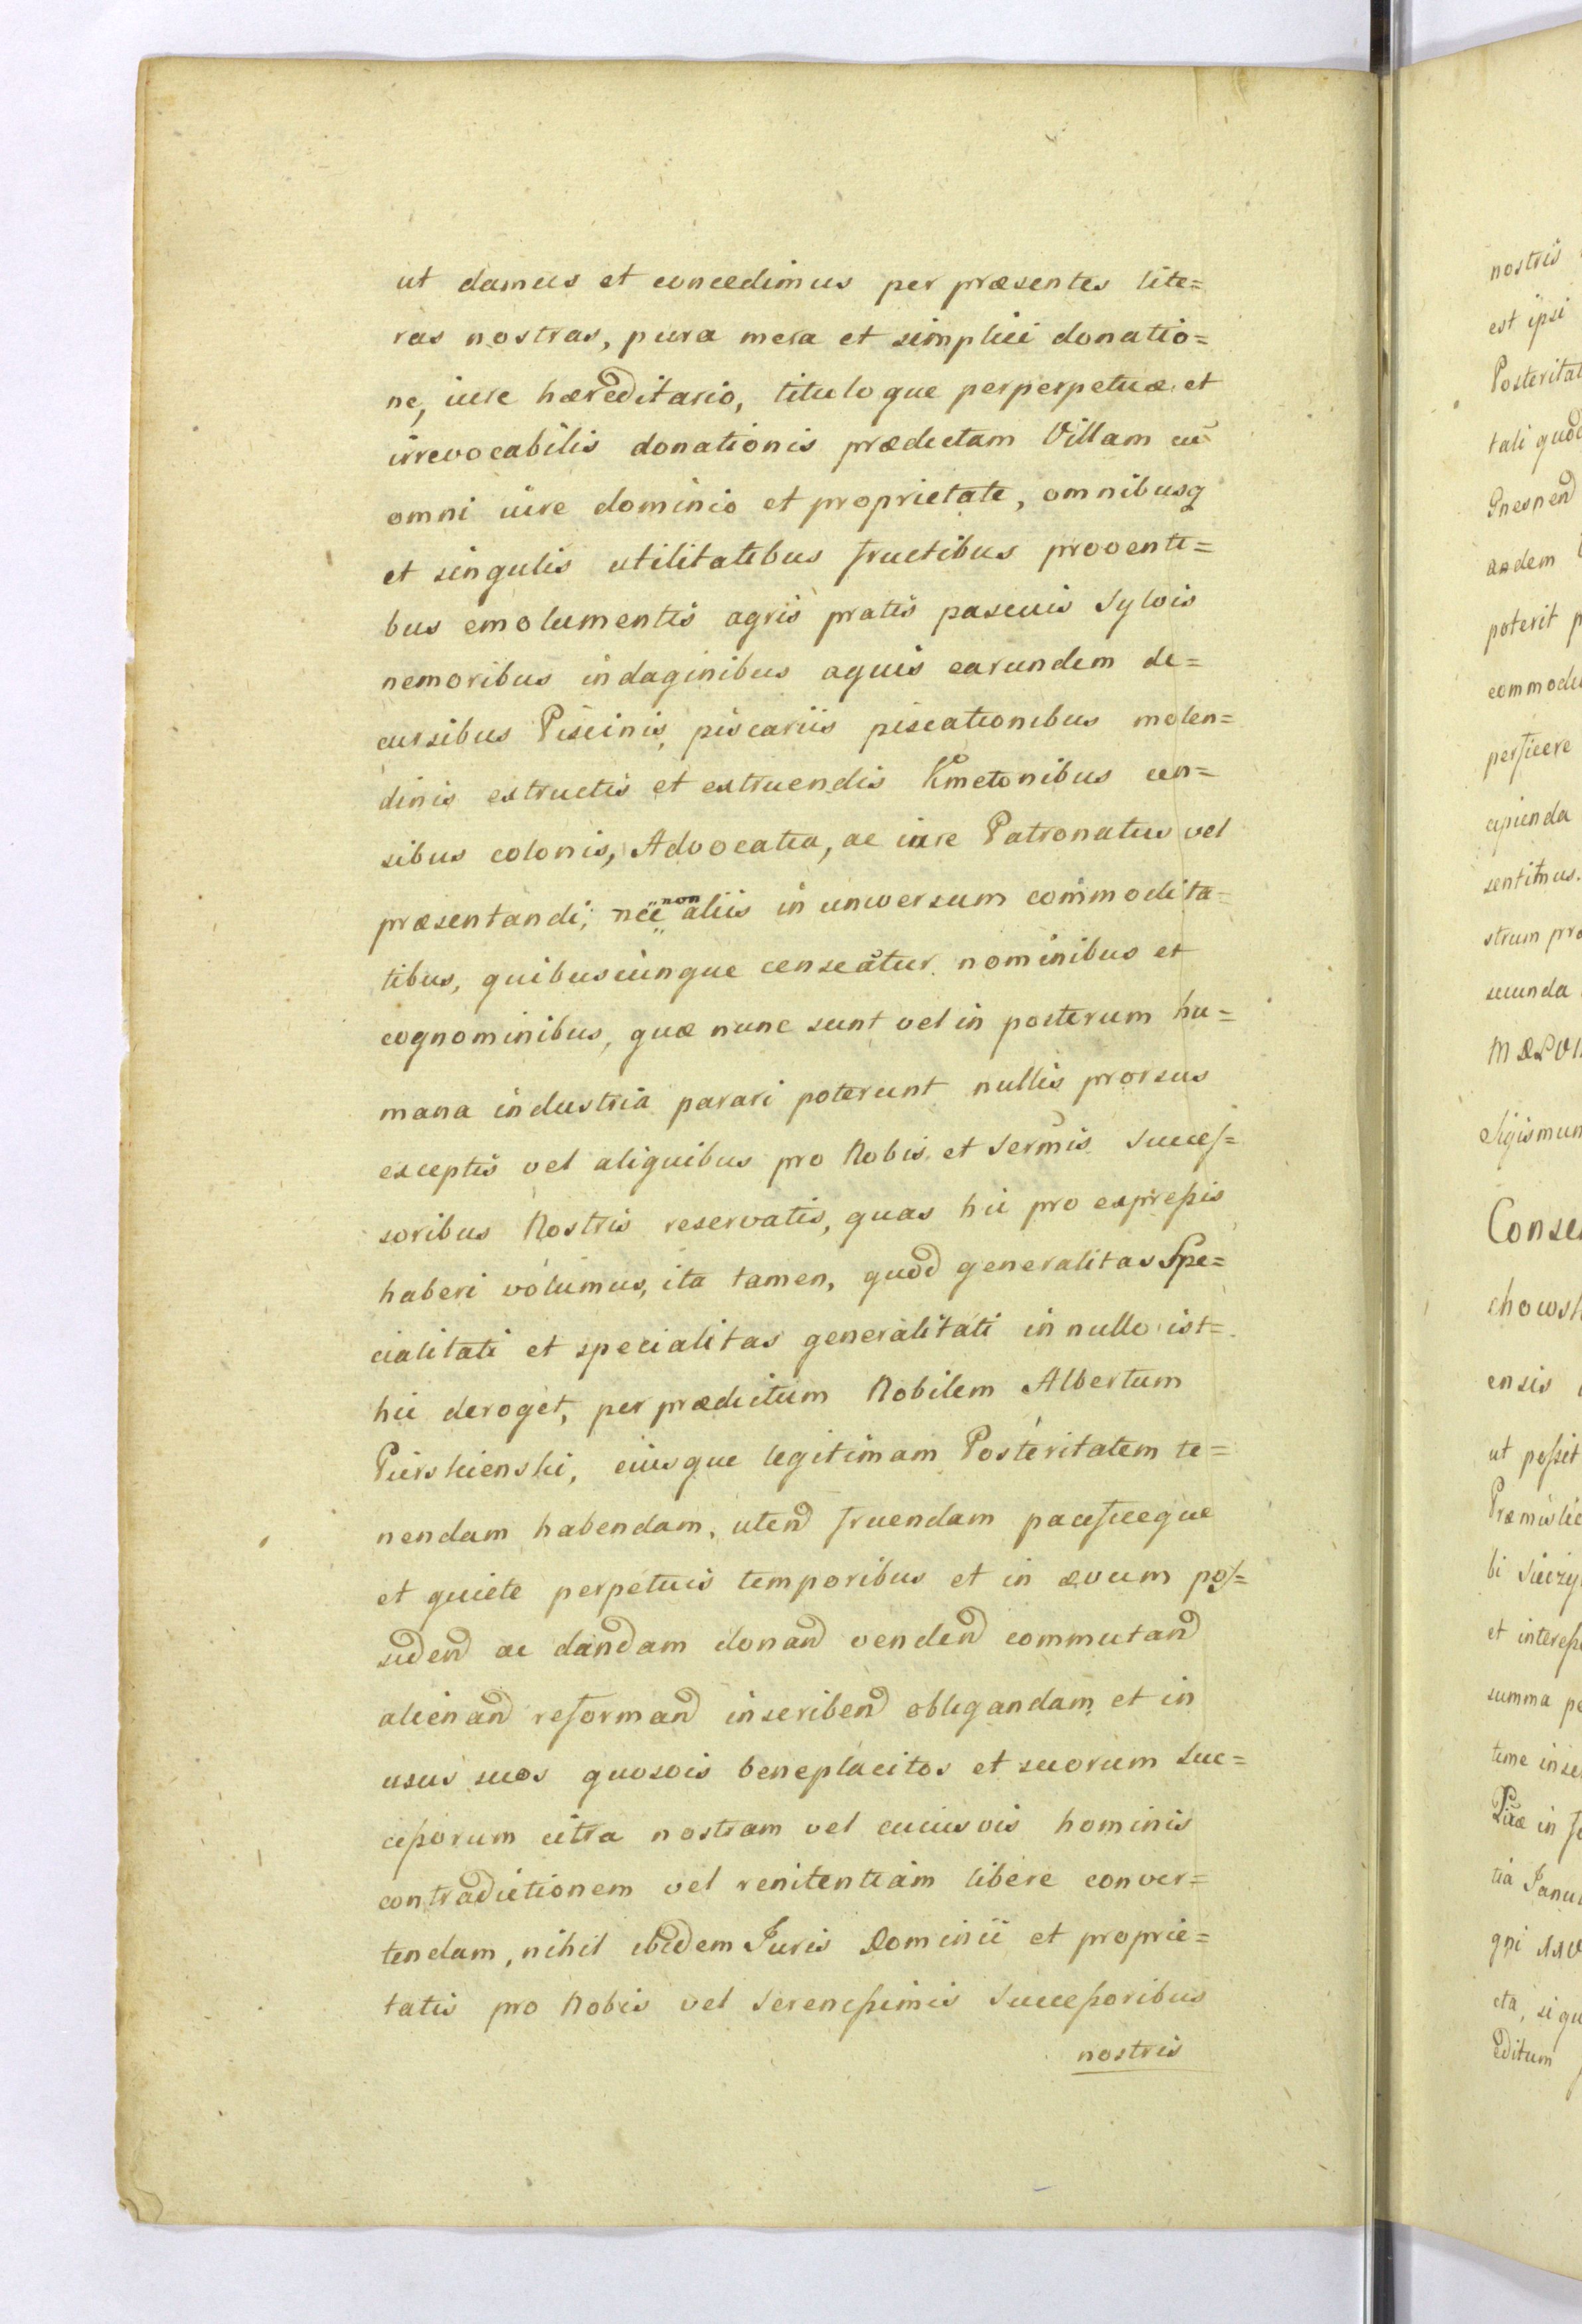 ut damus et concedimus per præsentes lite=
ras nostras, pura mera et simplici donatio=
ne, iure hæreditario, titulo que perperpetuæ et
irrevocabilis donationis prædictam Villam cū
omni iure dominio et proprietate, omnibusq
et singulis utilitatibus fructibus proventi=
bus emolumentis agris pratis pascuis Sylvis
nemoribus indaginibus aquis earundem de=
cursibus Piscinis, piscariis piscationibus molen=
dinis extructis et extruendis Kmetonibus cen=
sibus colonis, Advocatia, ac iure Patronatus vel
præsentandi; nec non aliis in universum commodita=
tibus, quibuscunque censeatur nominibus et
cognominibus, quæ nunc sunt vel in posterum hu=
mana industria parari poterunt nullis prorsus
exceptis vel aliquibus pro Nobis et Sermis Succes=
soribus Nostris reservatis, quas hic pro expressis
haberi volumus, ita tamen, quod generalitas Spe=
cialitati et specialitas generalitati in nullo ist=
hic deroget, per prædictum Nobilem Albertum
Pierskienski, eiusque legitimam Posteritatem te=
nendam habendam, utend fruendam pacificeque
et quiete perpetuis temporibus et in ævum pos=
sidend ac dandam donand vendend commutand
alienand reformand inscribend obligandam et in
usus suos quosvis beneplacitos et suorum Suc=
cessorum citra nostram vel cuiusvis hominis
contradictionem vel renitentiam libere conver=
tendam, nihil ibidem Juris Dominii et proprie=
tatis pro Nobis vel Serenissimis Successoribus
nostris
nostris
est ipsi
Posteritat
tali quod
Gnesnend
andem
poterit p
commodu
perficere
cipienda
sentimus.
strum pro
secunda
Sigismun
Conse
chowsk
ensis
ut possit
bi
et interess
summa pe
time inse
in
tia Janu
gni
cta, si qu
Editum